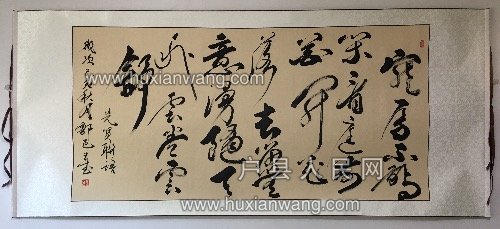 寵辱不驚
闲看庭前
花开花
落去留無
意漫随天
外雲卷雲
舒
先贤联语
www.huxianwang.com
户县人网
www.huxianwang.com